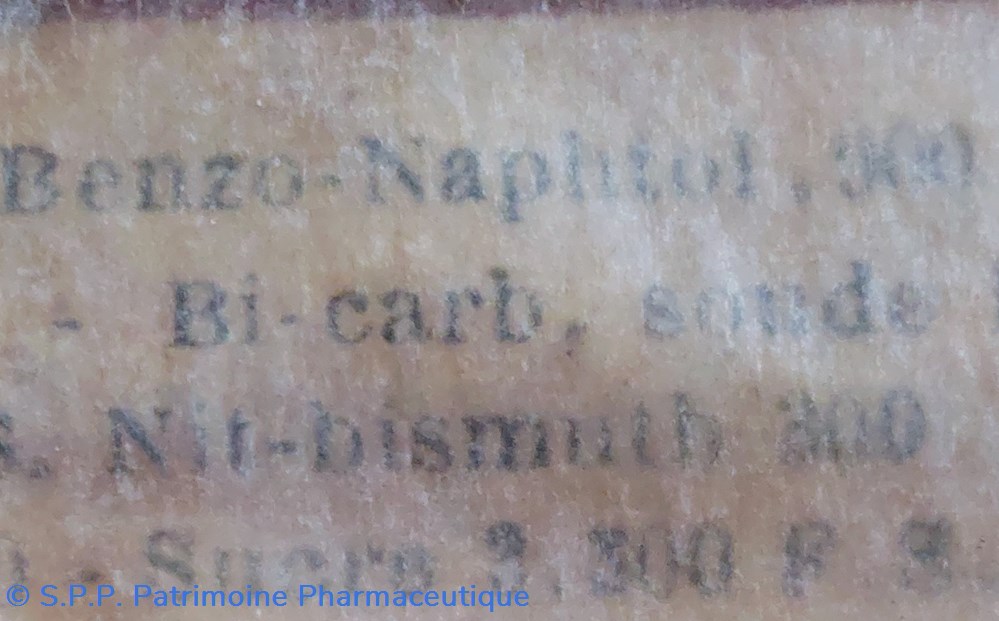 Benzo-Naphtol, 300
- Bi-carb, soude
. Nit-bismuth 300
- Sucre 3.500 F S
© S.P.P. Patrimoine Pharmaceutique